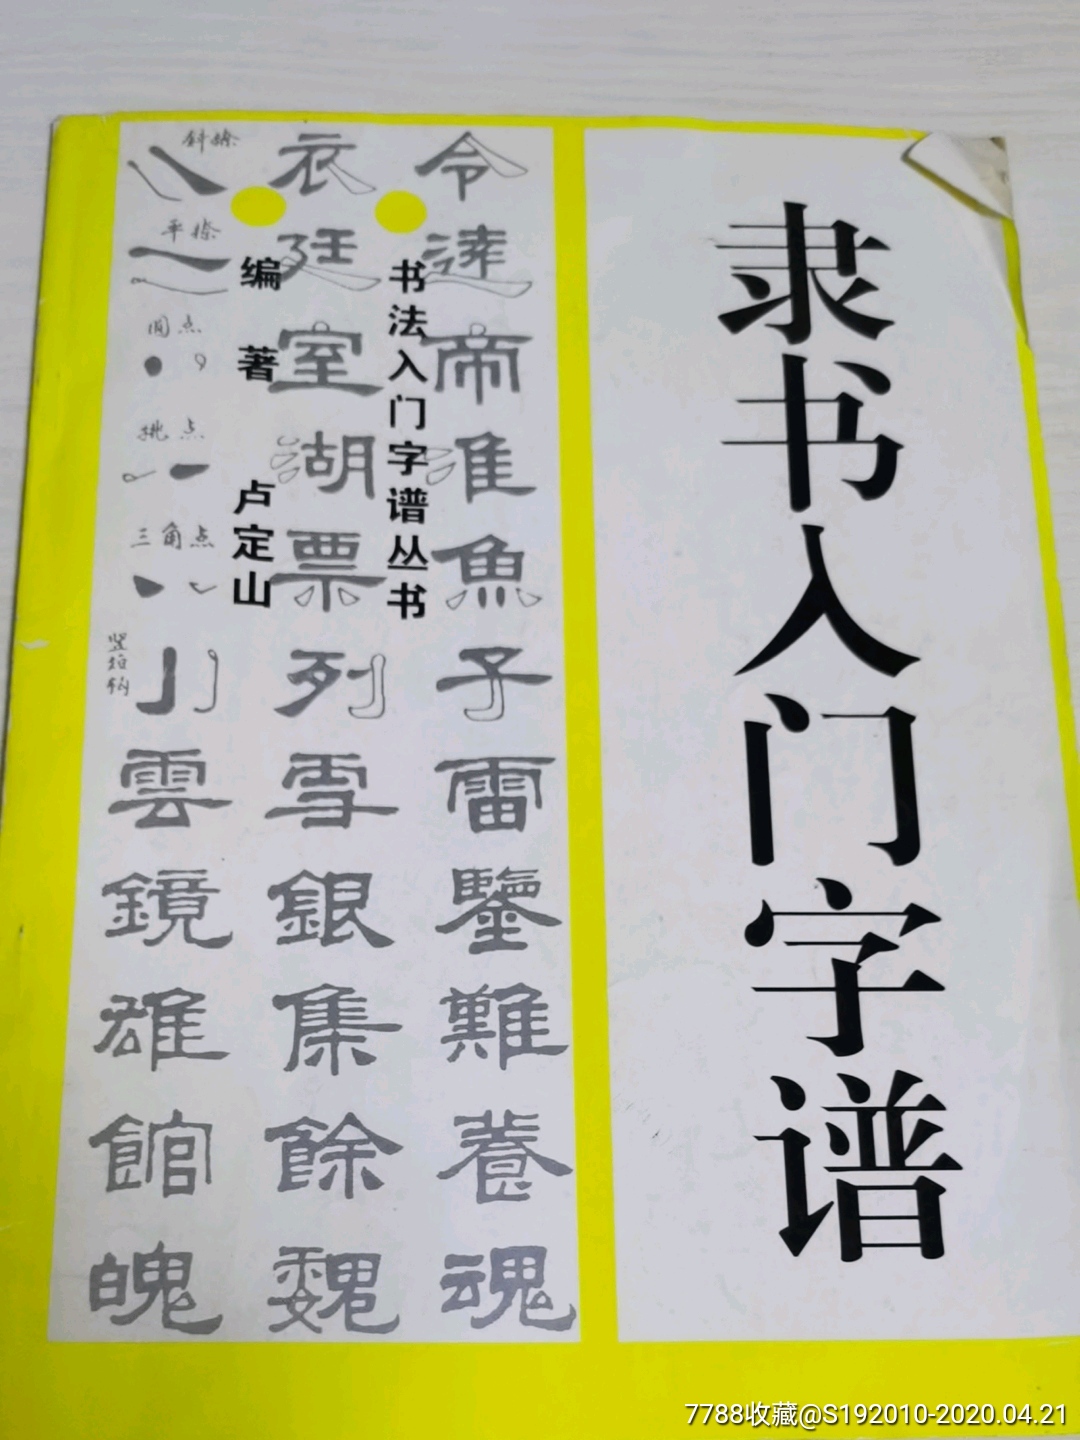 隶书入门字谱
书法入门字谱丛书
编著 卢定山
令
達
帝
淮
魚
子
雷
鑒
難
養
魂
衣
廷
室
湖
票
列
雪
銀
集
餘
魏
斜捺
平捺
圆点
挑点
三角点
雲
鏡
雄
館
魄
7788收藏@S192010-2020.04.21